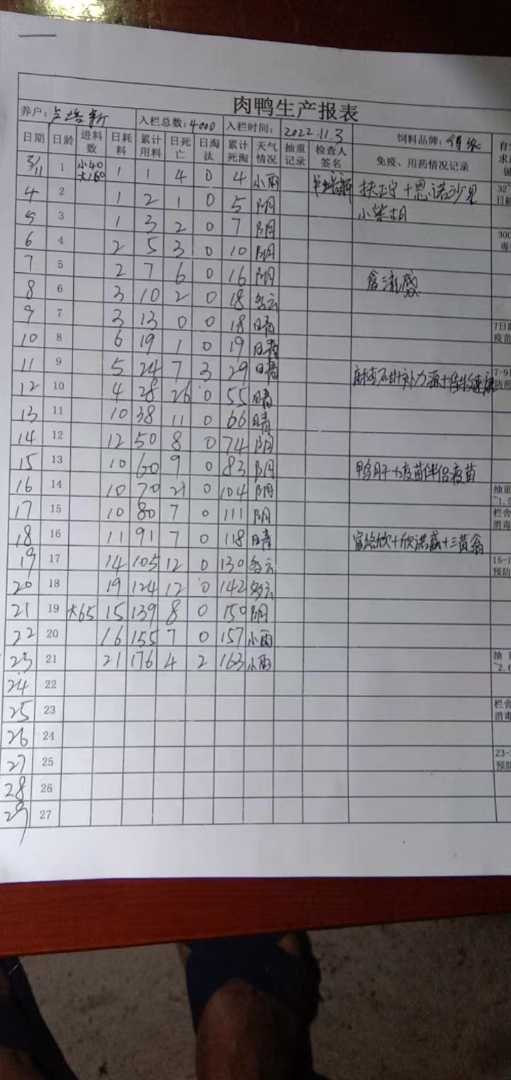 肉鸭生产报表
养户: 入栏总数:4000 入栏时间: 2022.11.3 饲料品牌:
日期 日龄 进料数 日耗料 累计用料 日死亡 日淘汰 累计死淘 天气情况 抽重记录 检查人签名 免疫、用药情况记录
3/11 1 小40 大160 1 1 4 0 4 小雨 扶正宁+恩诺沙星
4 2 1 2 1 0 5 阴 小柴胡
5 3 1 3 2 0 7 阴
6 4 2 5 3 0 10 阴
7 5 2 7 6 0 16 阴
8 6 3 10 2 0 18 多云
9 7 3 13 0 0 18 晴
10 8 6 19 1 0 19 晴
11 9 5 24 7 3 29 晴
12 10 4 28 26 0 55 晴
13 11 10 38 11 0 66 晴
14 12 12 50 8 0 74 阴
15 13 10 60 9 0 83 阴 鸭肝+疫苗伴侣疫苗
16 14 10 70 21 0 104 阴
17 15 10 80 7 0 111 阴
18 16 11 91 7 0 118 晴
19 17 14 105 12 0 130 多云
20 18 19 124 12 0 142 多云
21 19 大65 15 139 8 0 150 阴
22 20 16 155 7 0 157 小雨
23 21 21 176 4 2 163 小雨
24 22
25 23
26 24
27 25
28 26
29 27